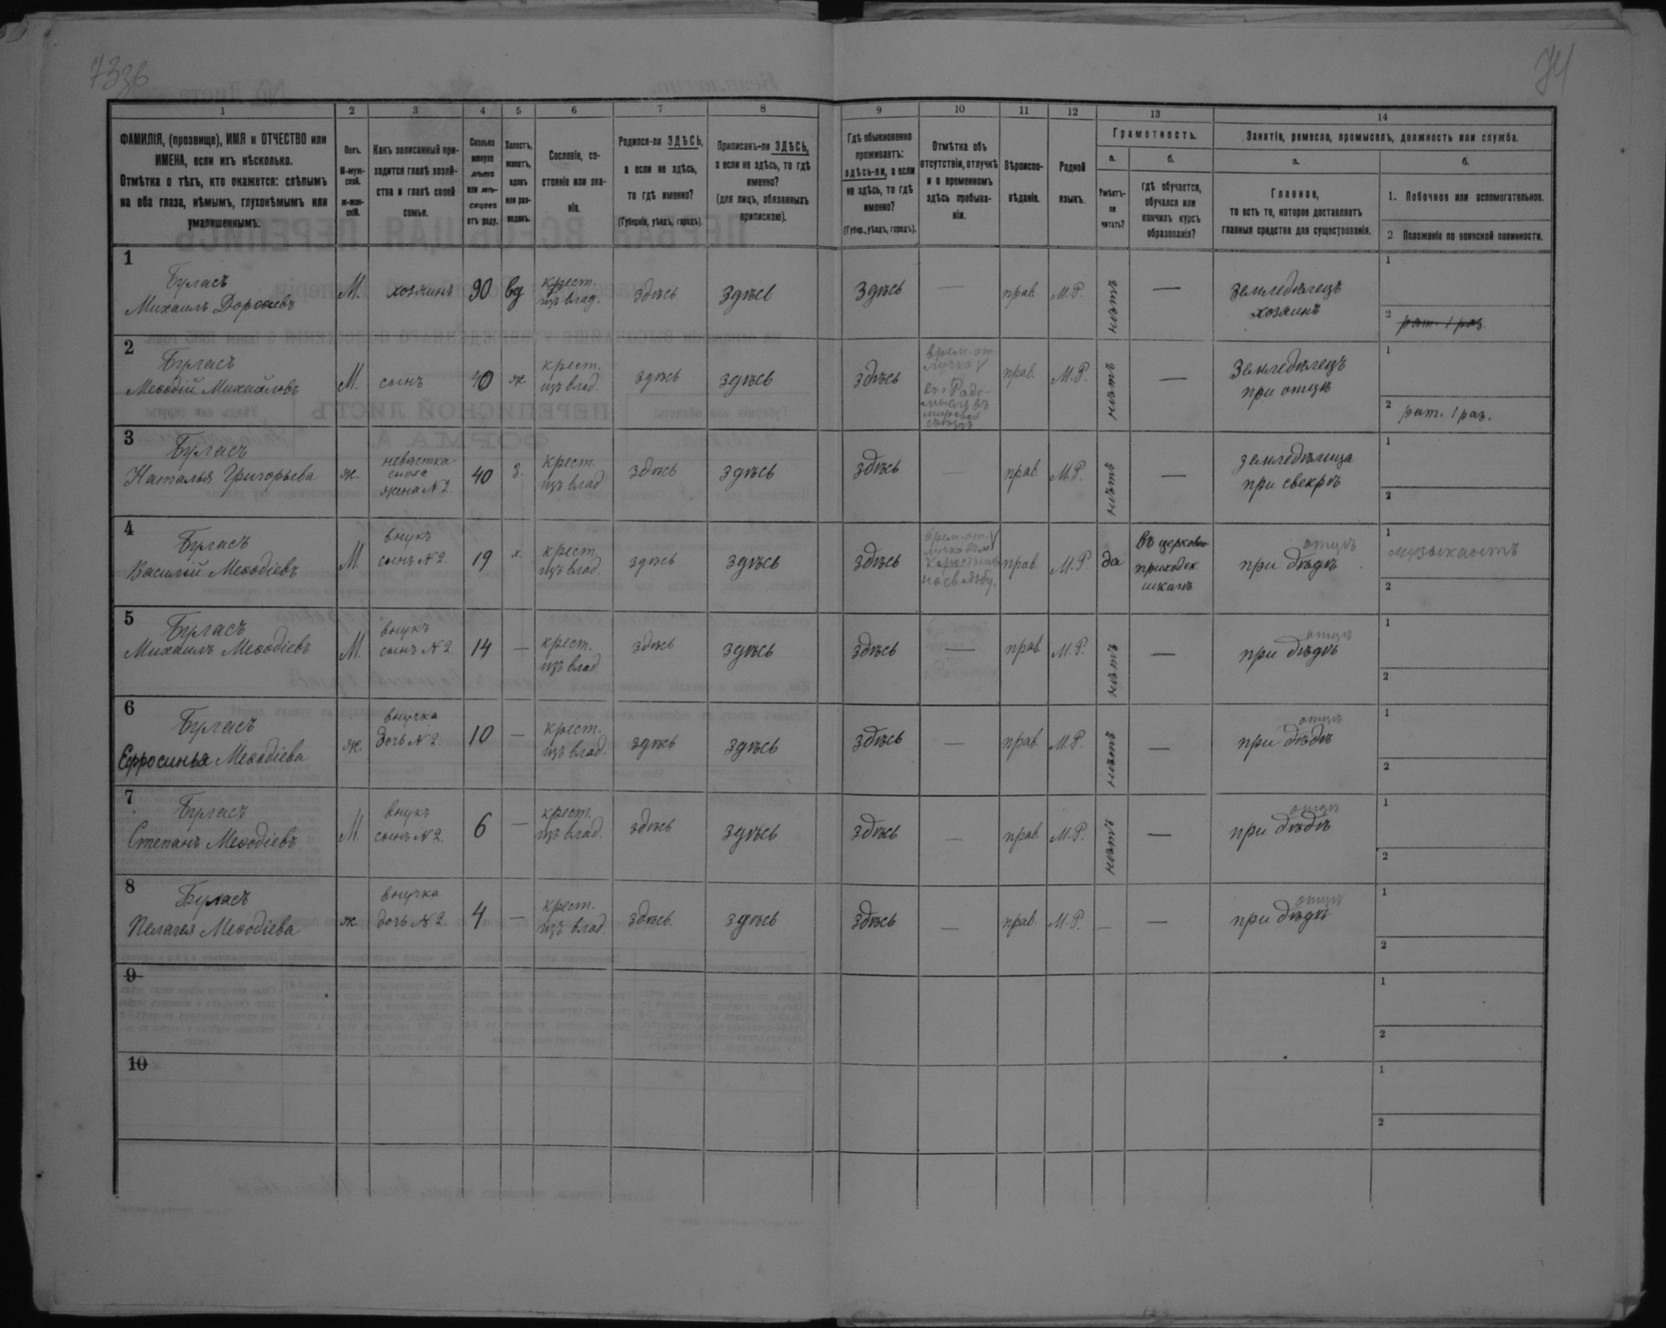 73об
74
1 2 3 4 5 6 7 8 9 10 11 12 13 14
ФАМИЛІЯ, (прозвище), ИМЯ и ОТЧЕСТВО или
ИМЕНА, если ихъ нѣсколько.
Отмѣтка о тѣхъ, кто окажется: слѣпымъ
на оба глаза, нѣмымъ, глухонѣмымъ или
умалишеннымъ.
Полъ.
М-муж-
ской.
ж-жен-
скій.
Какъ записанный при-
ходится главѣ хозяй-
ства и главѣ своей
семьи.
Сколько
минуло
лѣтъ
или мѣ-
сяцевъ
отъ роду.
Холостъ,
женатъ,
вдовъ
или раз-
веденъ.
Сословіе, со-
стояніе или зва-
ніе.
Родился-ли ЗДѢСЬ,
а если не здѣсь,
то гдѣ именно?
(Губернія, уѣздъ, городъ).
Приписанъ-ли ЗДѢСЬ,
а если не здѣсь, то гдѣ
именно?
(для лицъ, обязанныхъ
припискою).
Гдѣ обыкновенно
проживаетъ:
здѣсь-ли, а если
не здѣсь, то гдѣ
именно?
(Губер., уѣздъ, городъ).
Отмѣтка объ
отсутствіи, отлучкѣ
и о временномъ
здѣсь пребыва-
ніи.
Вѣроиспо-
вѣданіе.
Родной
языкъ.
Грамотность.
а.
Умѣетъ-
ли
читать?
б.
гдѣ обучается,
обучался или
кончилъ курсъ
образованія?
Занятіе, ремесло, промыселъ, должность или служба.
а.
Главное,
то есть то, которое доставляетъ
главныя средства для существованія.
б.
1. Побочное или вспомогательное.
2 Положеніе по воинской повинности.
1
Бугласъ
Михаилъ Дорофеевъ
М. хозяинъ 90 вд
крест.
изъ влад.
здѣсь здѣсь здѣсь — прав. М.Р. нѣтъ —
земледѣлецъ
хозяинъ
1
2 рат. 1 раз.
2
Бугласъ
Меѳодій Михайловъ
М. сынъ 40 ж
крест.
изъ влад.
здѣсь здѣсь здѣсь
врем. от
лучка
въ Радо-
мыслѣ въ
мировой
съѣздъ
прав. М.Р. нѣтъ —
Земледѣлецъ
при отцѣ
1
2 рат. 1 раз.
3
Бугласъ
Наталья Григорьева
ж.
невѣстка
сноха
жена № 2.
40 з.
крест.
изъ влад
здѣсь здѣсь здѣсь — прав. М.Р. нѣтъ —
земледѣлица
при свекрѣ
1
2
4
Бугласъ
Василій Меѳодіевъ
М
внукъ
сынъ № 2
19 х.
крест.
изъ влад.
здѣсь здѣсь здѣсь
врем. от
на свадьбу.
прав. М.Р да
въ церковно
приходск
школѣ
отцѣ
при дѣдѣ
1 музыкантъ
2
5
Бугласъ
Михаилъ Меѳодіевъ
М.
внукъ
сынъ № 2.
14 —
крест.
изъ влад.
здѣсь здѣсь здѣсь — прав М.Р. нѣтъ —
отцѣ
при дѣдѣ
1
2
6
Бугласъ
Ефросинья Меѳодіева
ж.
внучка
дочь № 2.
10 —
крест.
изъ влад.
здѣсь здѣсь здѣсь — прав. М.Р. нѣтъ —
отцѣ
при дѣдѣ
1
2
7
Бугласъ
Степанъ Меѳодіевъ
М.
внукъ
сынъ № 2.
6 —
крест.
изъ влад.
здѣсь здѣсь здѣсь — прав. М.Р. нѣтъ —
отцѣ
при дѣдѣ
1
2
8
Бугласъ
Пелагея Меѳодіева
ж
внучка
дочь № 2.
4 —
крест.
изъ влад.
здѣсь. здѣсь здѣсь — прав. М.Р. — —
отцѣ
при дѣдѣ
1
2
9
1
2
10
1
2